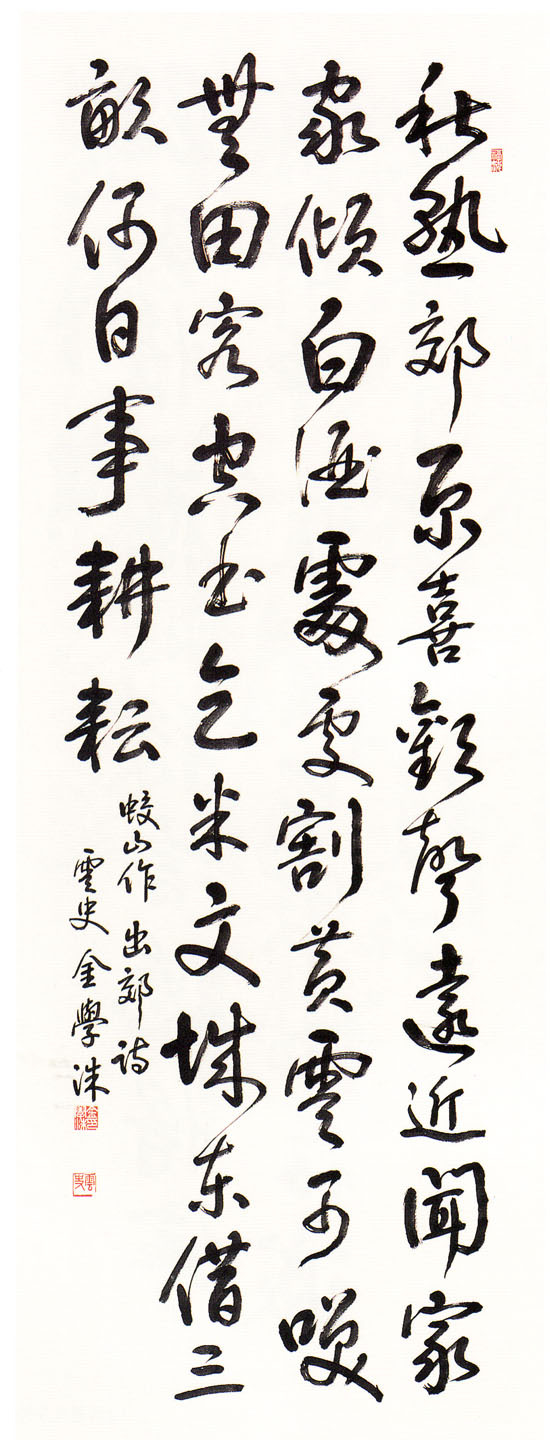 秋熟郊原喜歡聲遠近聞家
家傾白酒處處割黃雲可咲
無田客空書乞米文城東借三
畝何日事耕耘
蛟山作 出郊詩
雲史 金學洙